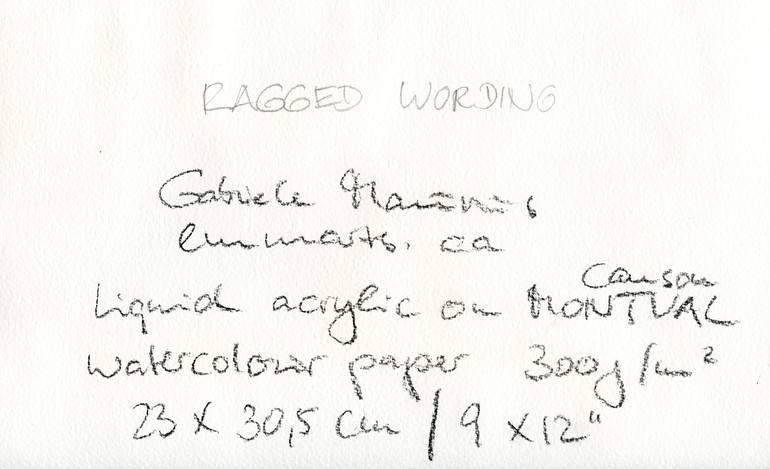 RAGGED WORDING
Gabriele
emmarts.ca
Canson
Liquid acrylic on MONTVAL
watercolour paper 300g/m²
23 x 30,5 cm / 9 x 12"